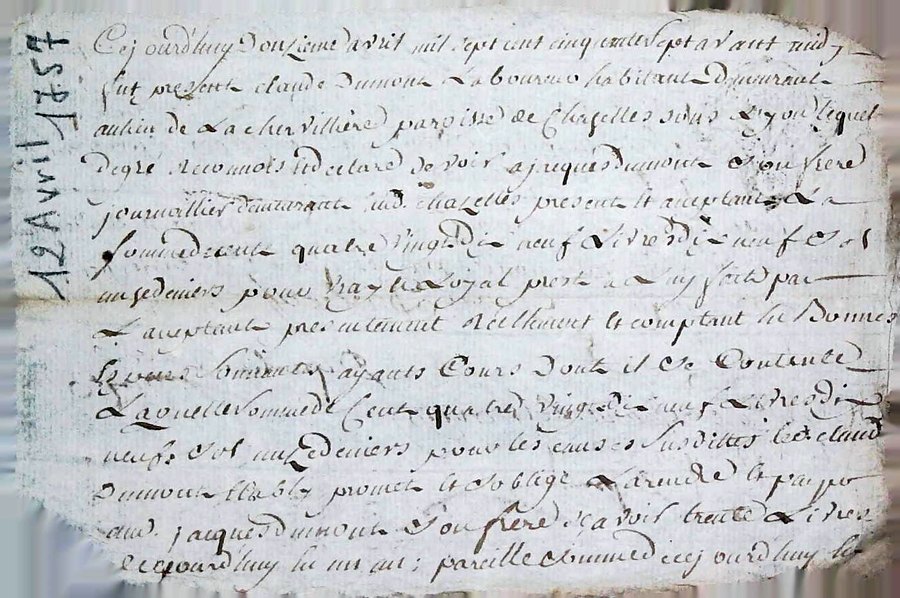 12 Avril 1757
Cejourd'huy douzieme avril mil sept cent cinquante sept avant midy
fut present claude Dumont Laboureur habitant demeurant
au lieu de La chervilliere paroisse de Chazelles sous Lyon lequel
degré reconnois et declare devoir a jacques dumont Son frere
journaillier demeurant aud. chazelles present et aceptant La
Somme de cente quatre vingt dix neuf Livres dix neuf Sol
unze deniers pour vray et Loyal prest a Luy fait par
L'aceptant presentement reellement et comptant en Bonnes
ayants Cours dont il Se Contente
Laquelle Somme de Cent quatre vingt dix neuf Livres dix
neuf Sol unze deniers pour les causes Susdittes led. claude
Dumont promet et Soblige La rendre et payer
aud. jacques dumont Son frere Sçavoir trente Livres
de cejourdhuy en un an; pareille Somme dicy cejourdhuy